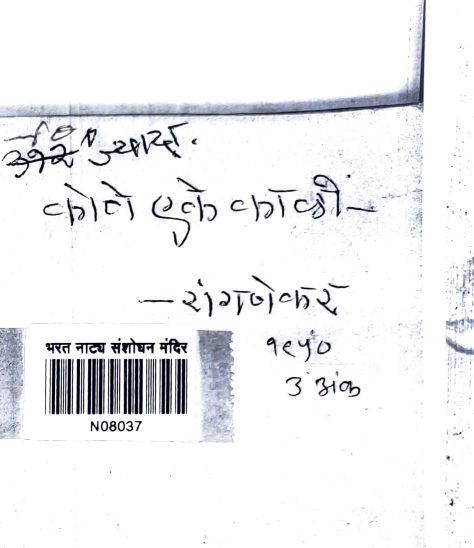 कोणे एके काळीं –
– रांगणेकर
१९५०
३ अंक
भरत नाट्य संशोधन मंदिर
N08037